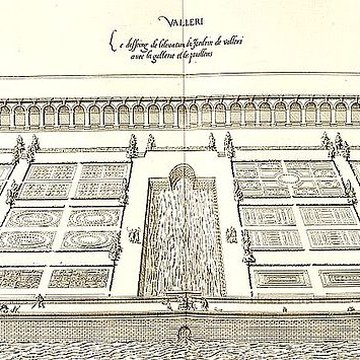 VALLERI
Le dessing de l'elevation du Jardin de Valleri
avec la gallerie et les pavillons